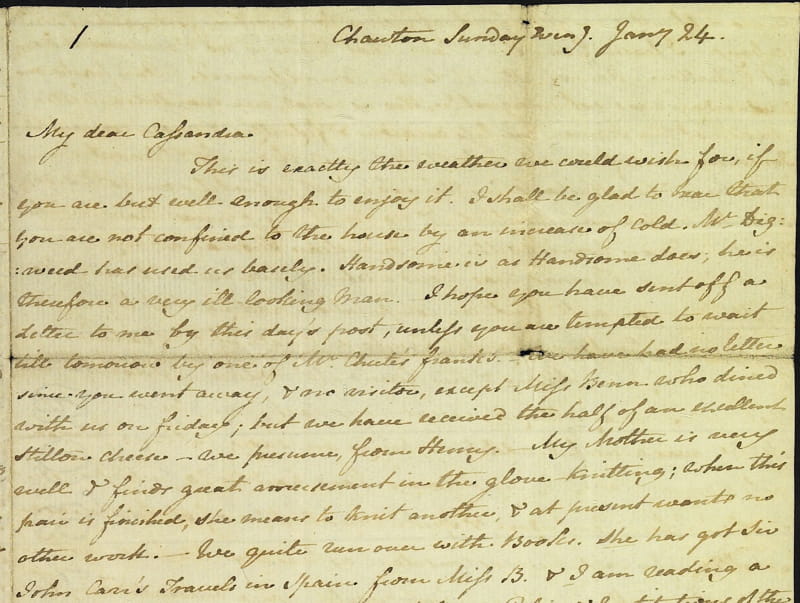 1
Chawton Sunday Eveng. Jany 24.
My dear Cassandra
This is exactly the weather we could wish for, if
you are but well enough to enjoy it. I shall be glad to hear that
you are not confined to the house by an increase of Cold. Mr Dig:
:weed has used us basely. Handsome is as Handsome does; he is
therefore a very ill-looking Man. I hope you have sent off a
Letter to me by this day's post, unless you are tempted to wait
till tomorrow by one of Mr Chute's franks. – We have had no letter
since you went away, & no visitor, except Miss Benn who dined
with us on friday; but we have received the half of an excellent
Stilton cheese – we presume, from Henry. – My Mother is very
well & finds great amusement in the glove-knitting; when this
pair is finished, she means to knit another, & at present wants no
other work. – We quite run over with Books. She has got Sir
John Carr's Travels in Spain from Miss B. & I am reading a
of the